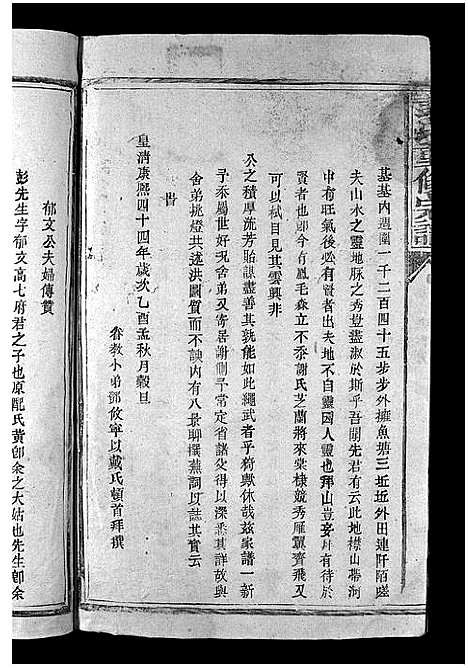 墓基內週圍一千二百四十五步步外擁魚塘三坵坵外田連阡陌嗟
夫山水之靈地脉之秀豈盡淑於斯乎吾聞先君有云此地襟山帶河
中有旺氣後必有賢者出夫地不自靈因人靈也拜山豈妄
有待於
後也即今有鳳毛森立不忝謝氏芝蘭將來棠棣競秀雁翼齊飛又
可以拭目見其雲興非
公之積厚流芳貽謀盡善其孰能如此繩武者乎猗歟休哉茲家譜一新
予忝屬世好況舍弟又寄居謝
予常定省諸父得以深悉其詳故與
舍弟挑燈共述洪圖質而不諛內有八景聊撰蕪詞以誌其實云
皆
皇清康熙四十四年歲次乙酉孟秋月穀旦
眷教小弟鄧攸寧以戴氏頓首拜撰
郁文公夫婦傳贊
彭先生字郁文高七府君之子也原配氏黃卽余之大姑也先生卽余
重修宗譜